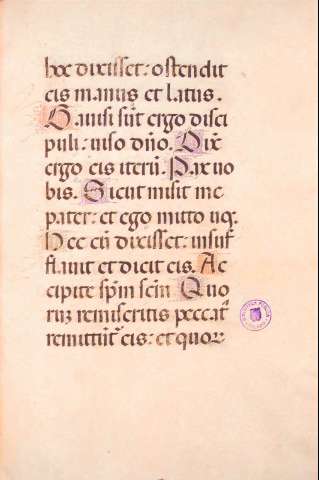 hoc dixisset: ostendit
eis manus et latus.
Gavisi sūt ergo disci
puli: viso dño. Dix̄
ergo eis iterū. Pax vo
bis. Sicut misit me
pater: et ego mitto vos.
Hec cū dixisset: insuf
flavit et dicit eis. Ac
cipite sp̄m scm̄ Quo
rum remiseritis peccat̄
remittūt̄ eis: et quor